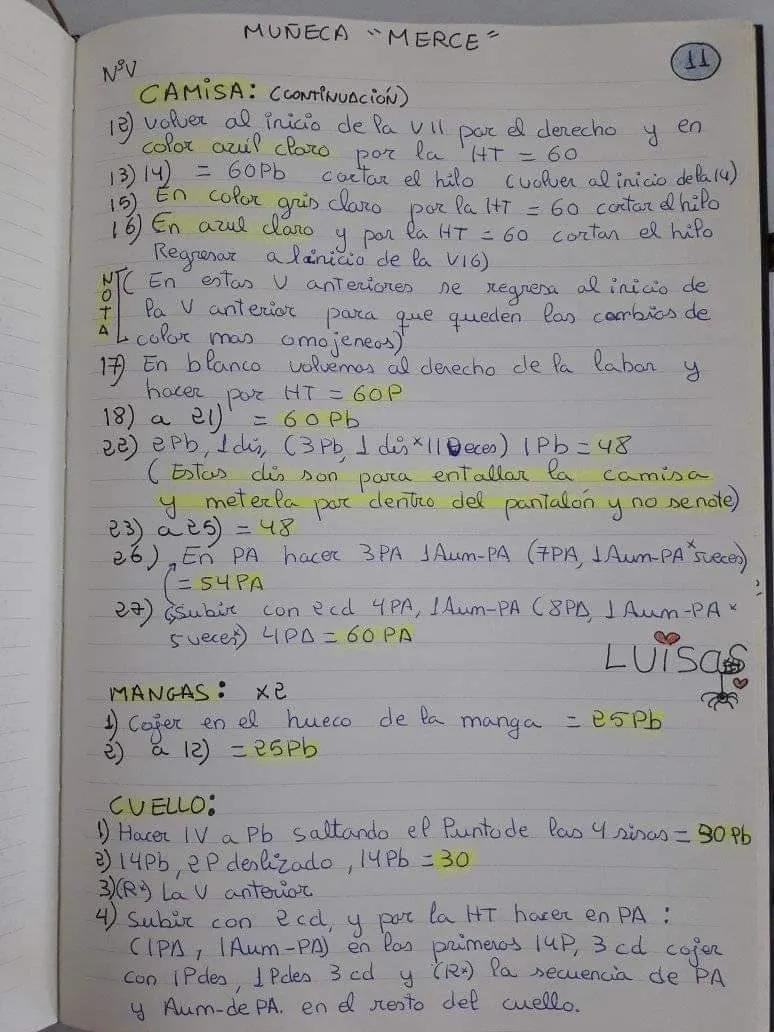 MUÑECA "MERCE"
11
NºV
CAMISA: (CONTINUACIÓN)
12) Volver al inicio de la V11 por el derecho y en
color azúl claro por la HT = 60
13) 14) = 60Pb cortar el hilo (volver al inicio de la 14)
15) En color gris claro por la HT = 60 cortar el hilo
16) En azul claro y por la HT = 60 cortar el hilo
Regresar al inicio de la V16)
NOTA
( En estas V anteriores se regresa al inicio de
la V anterior para que queden los cambios de
color mas omojeneos)
17) En blanco volvemos al derecho de la labor y
hacer por HT = 60P
18) a 21) = 60Pb
22) 2Pb, 1dis, (3Pb, 1dis*11veces) 1Pb = 48
( Estas dis son para entallar la camisa
y meterla por dentro del pantalón y no se note)
23) a 25) = 48
26) En PA hacer 3PA 1Aum-PA (7PA, 1Aum-PA*5veces)
(= 54PA
27) (Subir con 2cd 4PA, 1Aum-PA (8PA, 1Aum-PA*
5veces) 4PA = 60PA
LUISAS
MANGAS: x2
1) Cojer en el hueco de la manga = 25Pb
2) a 12) = 25Pb
CUELLO:
1) Hacer 1V a Pb saltando el Punto de las 4 sisas = 30Pb
2) 14Pb, 2P deslizado, 14Pb = 30
3) (R*) La V anterior
4) Subir con 2cd, y por la HT hacer en PA:
(1PA, 1Aum-PA) en los primeros 14P, 3cd cojer
con 1Pdes, 1Pdes 3cd y (R*) la secuencia de PA
y Aum-de PA. en el resto del cuello.